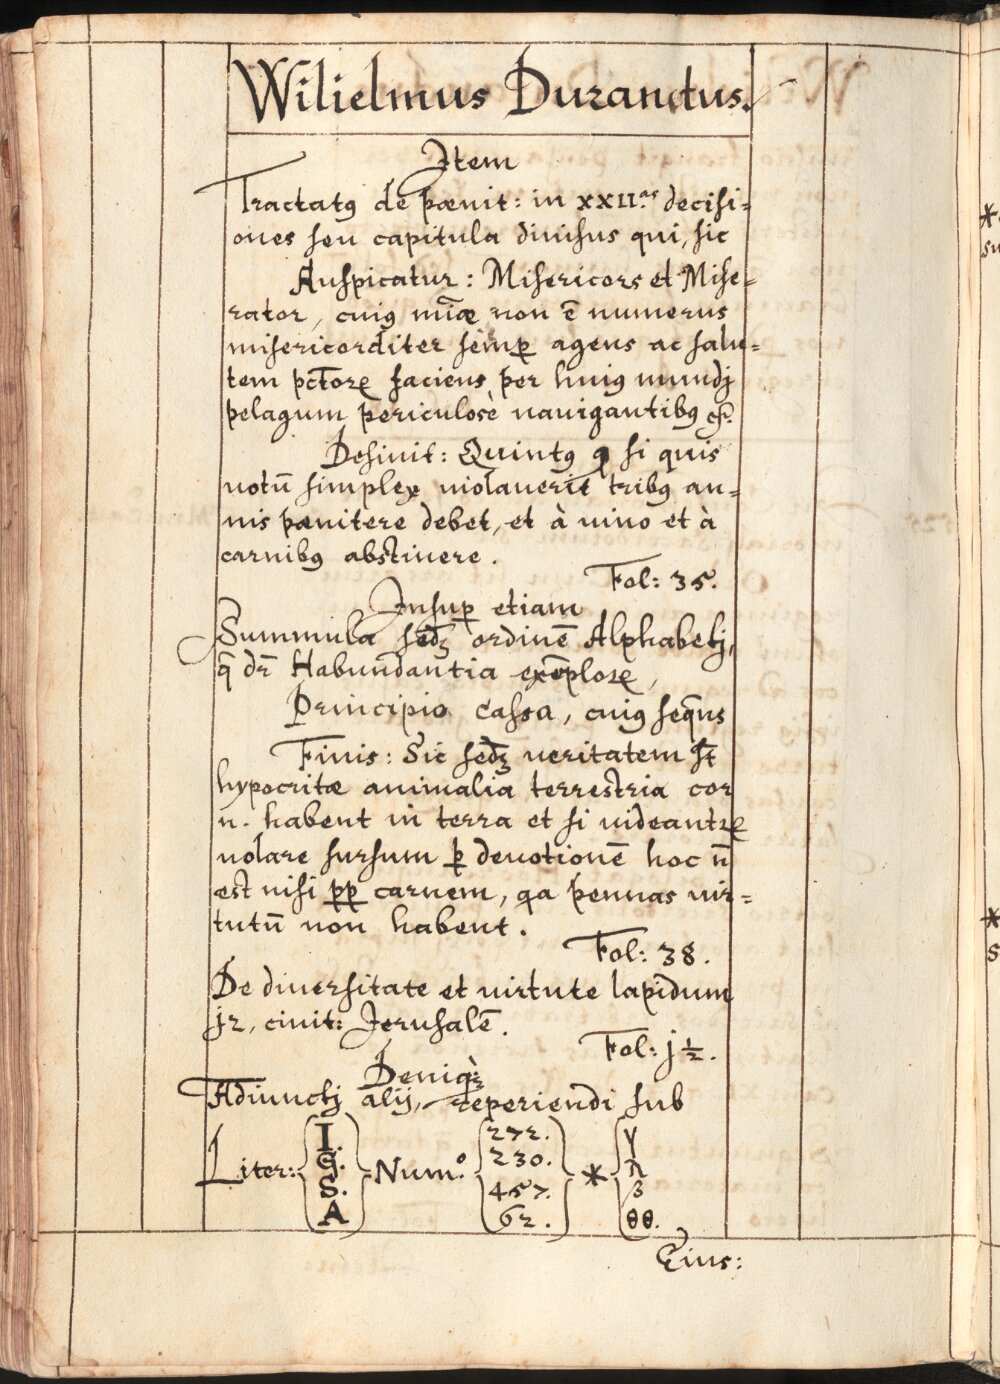 Wilielmus Duranctus.
Item
Tractatꝰ de pænit: in XXII.as decisi=
ones seu capitula diuisus qui, sic
Auspicatur: Misericors et Mise=
rator, cuiꝰ mĩæ non ẽ numerus
misericorditer semꝑ agens ac salu=
tem pctorꝝ faciens per huiꝰ mundj
pelagum periculosè nauigantibꝰ &c:
Desinit: Quintꝰ ꝙ si quis
uotũ simplex uiolauerit tribꝰ an=
nis pænitere debet, et à uino et à
carnibꝰ abstinere.
Fol: 35.
Insuꝑ etiam
Summula sedꝫ ordinẽ Alphabetj,
q̃ dr̃ Habundantia exẽplorꝝ,
Principio Cassa, cuiꝰ seq̃ns
Finis: Sic sedꝫ ueritatem st̃
hypocritæ animalia terrestria cor
n. habent in terra et si uideantꝝ
uolare sursum ꝑ deuotionẽ hoc ñ
est nisi ꝑꝑ carnem, qa pennas uir=
tutũ non habent.
Fol: 38.
De diuersitate et uirtute lapidum
jz, ciuit: Jerusalẽ.
Fol: j ½.
Deniqꝫ
Adiunctj alij, reperiendi sub
Liter: I. G. S. A Num.o 272. 230. 457. 62. * γ λ 3 θθ.
Eius: